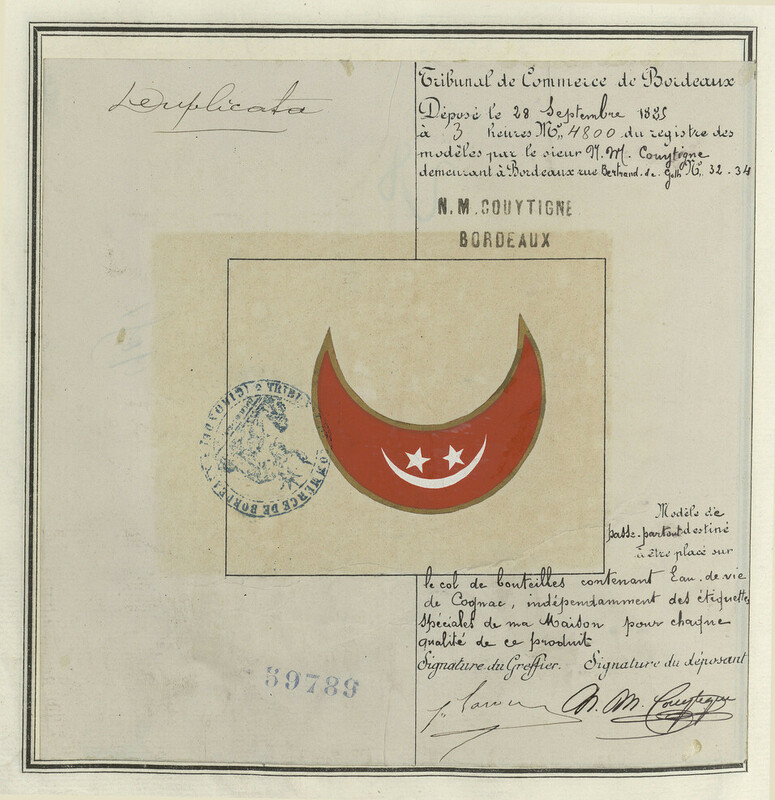 Duplicata
Tribunal de Commerce de Bordeaux
Déposé le 28 Septembre 1885
à 3 heures Nº 4800 du registre des
modèles par le sieur N. M. Couytigne
demeurant à Bordeaux rue Bertrand de Goth Nº 32.34
N.M.COUYTIGNE
BORDEAUX
TRIBUNAL DE COMMERCE DE BORDEAUX (GIRONDE)
Modèle de
passe-partout destiné
à être placé sur
le col de bouteilles contenant Eau de vie
de Cognac, indépendamment des étiquettes
spéciales de ma Maison pour chaque
qualité de ce produit
Signature du Greffier. Signature du déposant
N. M. Couytigne
59789